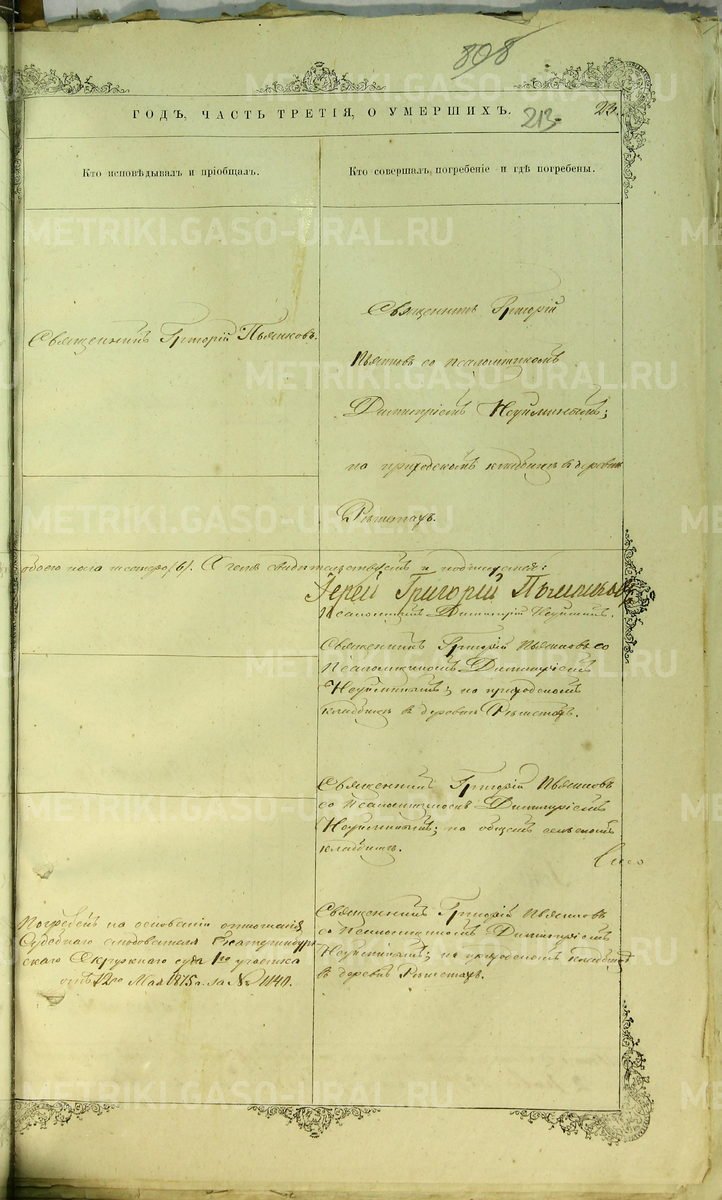 808
ГОДЪ, ЧАСТЬ ТРЕТІЯ, О УМЕРШИХЪ.
213
23.
Кто исповѣдывалъ и пріобщалъ.
Кто совершалъ погребеніе и гдѣ погребены.
METRIKI.GASO-URAL.RU
Священникъ Григорій Пьянковъ.
Священникъ Григорій
Пьянковъ со псаломщикомъ
Димитріемъ
на приходскомъ кладбищѣ въ деревнѣ
Рѣшетахъ.
обоего пола шестеро (6). О чемъ свидѣтельствуемъ и подписуемся:
Іерей Григорій Пьянковъ
Псаломщикъ Димитрій
Священникъ Григорій Пьянковъ со
Псаломщикомъ Димитріемъ
на приходскомъ
кладбищѣ въ деревнѣ Рѣшетахъ.
Священникъ Григорій Пьянковъ
со Псаломщикомъ Димитріемъ
на общемъ сельскомъ
кладбищѣ.
Погребенъ на основаніи отношенія
Судебнаго слѣдователя Екатеринбург-
скаго Окружнаго суда 1го участка
отъ 12го Мая 1875 г. за № 1140.
Священникъ Григорій Пьянковъ
со Псаломщикомъ Димитріемъ
на приходскомъ кладбищѣ
въ деревнѣ Рѣшетахъ.